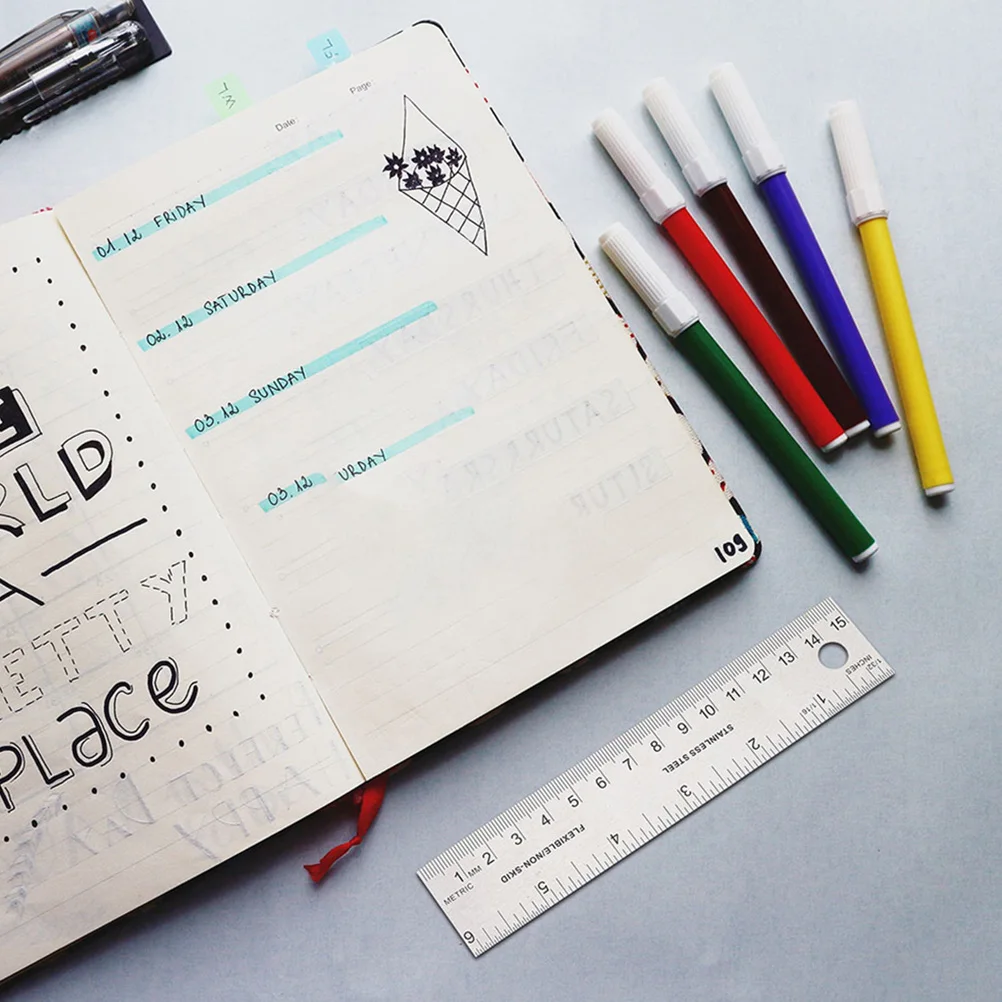 E
RLD
A
ETTY
PLace
Date:
Page:
01. 12 FRIDAY
02. 12 SATURDAY
03. 12 SUNDAY
03. 12 URDAY
109
1 2 3 4 5 6 7 8 9 10 11 12 13 14 15
MM
METRIC
STAINLESS STEEL
FLEXIBLE/NON-SKID
INCHES
1/32
1/16
1 2 3 4 5 6